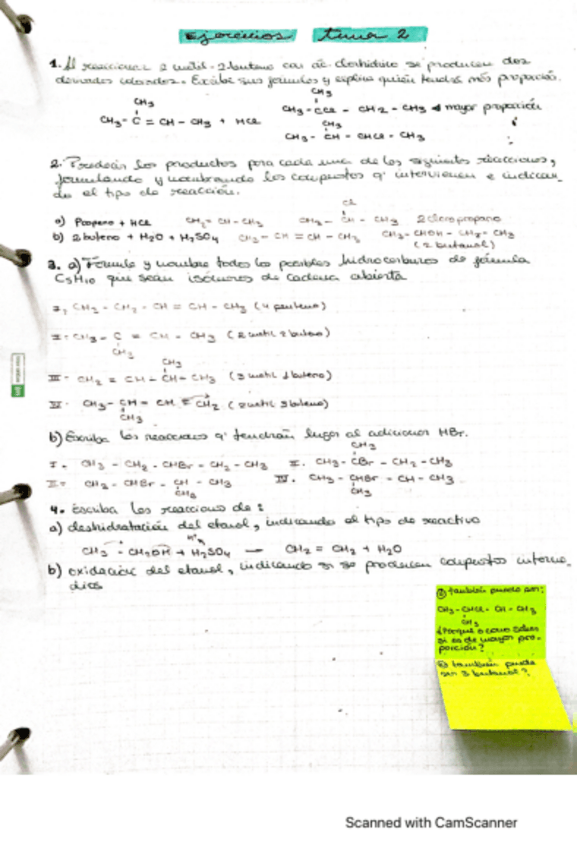 Ejercicios tema 2
1. Al reaccionar 2 metil-2-buteno con ác. clorhídrico se producen dos
derivados clorados. Escribe sus fórmulas y explica quién tendrá más proporción.
CH3 CH3
CH3-C = CH-CH3 + HCl CH3-CCl-CH2-CH3 mayor proporción
CH3
CH3-CH-CHCl-CH3
2. Predecir los productos para cada una de las siguientes reacciones,
formulando y nombrando los compuestos q' intervienen e indican-
do el tipo de reacción.
Cl
a) Propeno + HCl CH2=CH-CH3 CH3-CH-CH3 2 cloropropano
b) 2 buteno + H2O + H2SO4 CH3-CH=CH-CH3 CH3-CHOH-CH2-CH3
(2 butanol)
3. a) Formule y nombre todos los posibles hidrocarburos de fórmula
C5H10 que sean isómeros de cadena abierta
I. CH3-CH2-CH=CH-CH3
II- CH3-C = CH-CH3 (2 metil 2 buteno)
CH3
CH3
III- CH2=CH-CH-CH3 (3 metil 1 buteno)
IV- CH3-CH=CH=CH2 (2 metil 3 buteno)
CH3
b) Escriba las reacciones q' tendrán lugar al adicionar HBr.
CH3
I. CH3-CH2-CHBr-CH2-CH3 CH3-CBr-CH2-CH3
CH3-CHBr-CH-CH3 IV. CH3-CHBr-CH-CH3
CH3 CH3
4. Escriba las reacciones de:
a) deshidratación del etanol, indicando el tipo de reactivo
CH3-CH2OH + H2SO4 → CH2=CH2 + H2O
b) oxidación del etanol, indicando si se producen compuestos interme-
dios
también puede ser:
CH3-CHCl-CH-CH3
CH3
¿Porqué o como sabes
si es de mayor pro-
porción?
también puede
ser 3 butanol?
Scanned with CamScanner